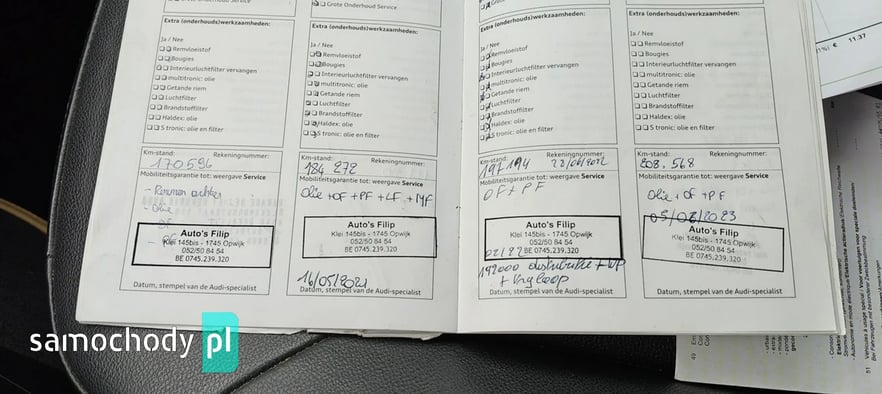 Grote Onderhoud Service
Extra (onderhouds)werkzaamheden:
Ja / Nee
Remvloeistof
Bougies
Interieurluchtfilter vervangen
multitronic: olie
Getande riem
Luchtfilter
Brandstoffilter
Haldex: olie
S tronic: olie en filter
Km-stand: Rekeningnummer:
170596
Mobiliteitsgarantie tot: weergave Service
- Remmen achter
- Olie
Auto's Filip
Klei 145bis - 1745 Opwijk
052/50 84 54
BE 0745.239.320
Datum, stempel van de Audi-specialist
Extra (onderhouds)werkzaamheden:
Ja / Nee
Remvloeistof
Bougies
Interieurluchtfilter vervangen
multitronic: olie
Getande riem
Luchtfilter
Brandstoffilter
Haldex: olie
S tronic: olie en filter
Km-stand: Rekeningnummer:
184 272
Mobiliteitsgarantie tot: weergave Service
Olie + OF + PF + LF +
Auto's Filip
Klei 145bis - 1745 Opwijk
052/50 84 54
BE 0745.239.320
16/05/2021
Datum, stempel van de Audi-specialist
Extra (onderhouds)werkzaamheden:
Ja / Nee
Remvloeistof
Bougies
Interieurluchtfilter vervangen
multitronic: olie
Getande riem
Luchtfilter
Brandstoffilter
Haldex: olie
S tronic: olie en filter
Km-stand: Rekeningnummer:
197194
Mobiliteitsgarantie tot: weergave Service
OF + PF
Auto's Filip
Klei 145bis - 1745 Opwijk
052/50 84 54
BE 0745.239.320
192000 distributie + WP
Datum, stempel van de Audi-specialist
Extra (onderhouds)werkzaamheden:
Ja / Nee
Remvloeistof
Bougies
Interieurluchtfilter vervangen
multitronic: olie
Getande riem
Luchtfilter
Brandstoffilter
Haldex: olie
S tronic: olie en filter
Km-stand: Rekeningnummer:
208.568
Mobiliteitsgarantie tot: weergave Service
Olie + OF + PF
05/02/2023
Auto's Filip
Klei 145bis - 1745 Opwijk
052/50 84 54
BE 0745.239.320
Datum, stempel van de Audi-specialist
€ 11.37
samochody pl